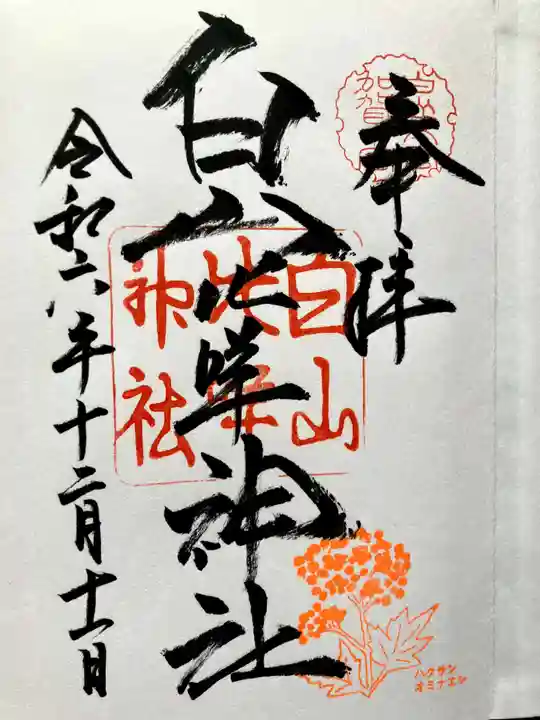 奉拝
白山比咩神社
白山比咩神社
令和六年十二月十一日
ハクサン
オミナエシ